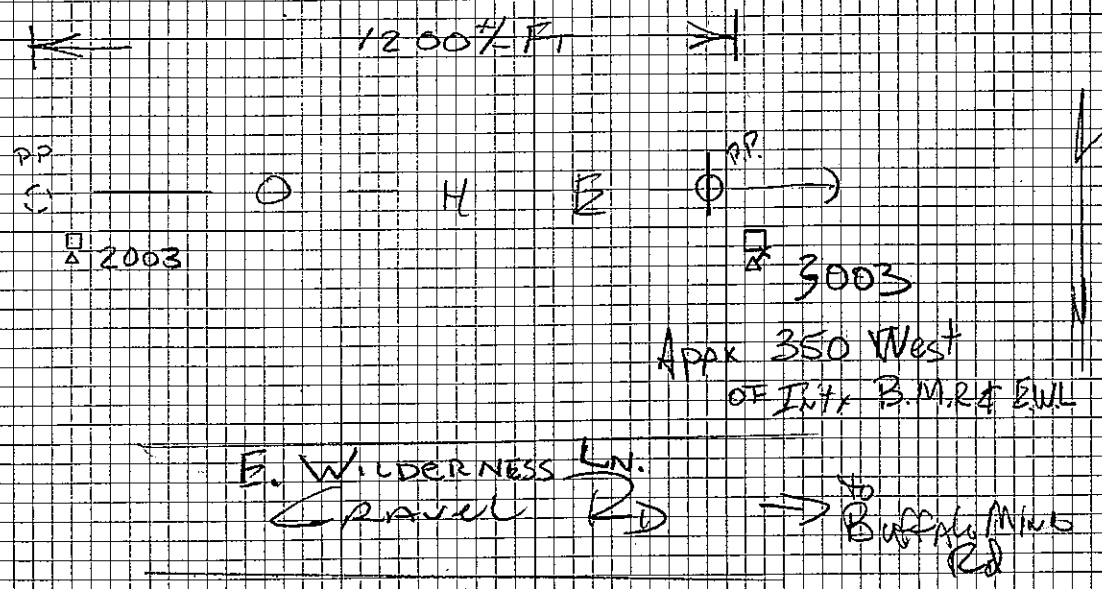 1200 +/- FT
P.P.
P.P.
O H E
2003
3003
Appx 350 West
OF INTX B.M.R & E.W.L
E. WILDERNESS LN.
GRAVEL RD
to
Buffalo Mine
Rd